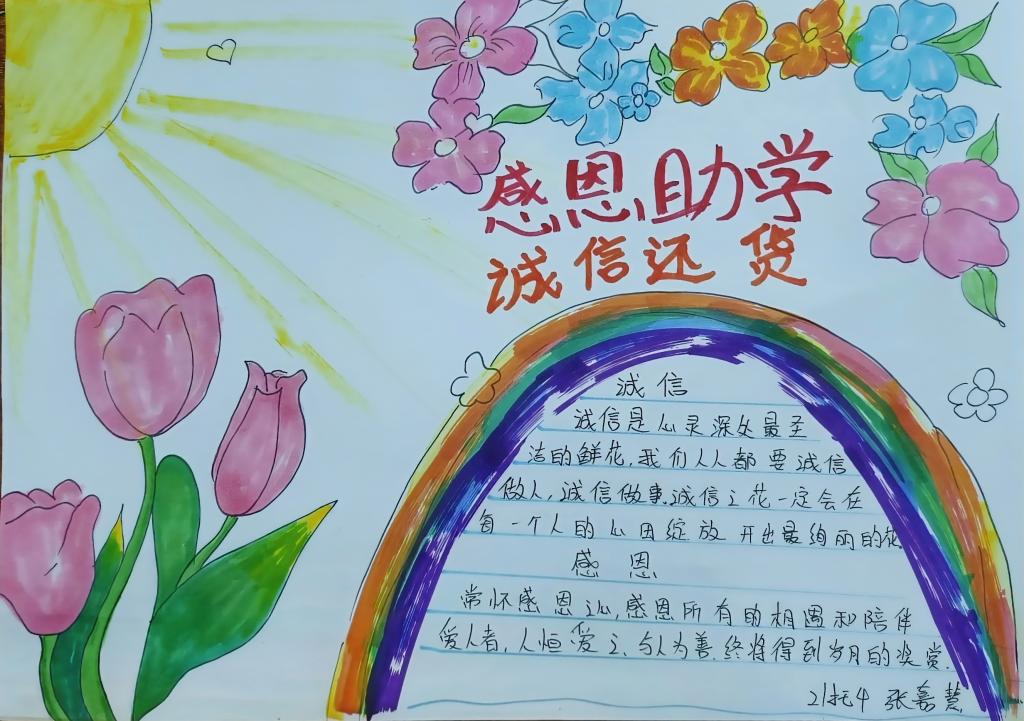 感恩助学
诚信还货
诚信
诚信是心灵深处最圣
洁的鲜花,我们人人都要诚信
做人,诚信做事.诚信之花一定会在
每一个人的心田绽放 开出最绚丽的花
感恩
常怀感恩心,感恩所有的相遇和陪伴
爱人者,人恒爱之,与人为善.终将得到岁月的奖赏.
21托4 张嘉慧